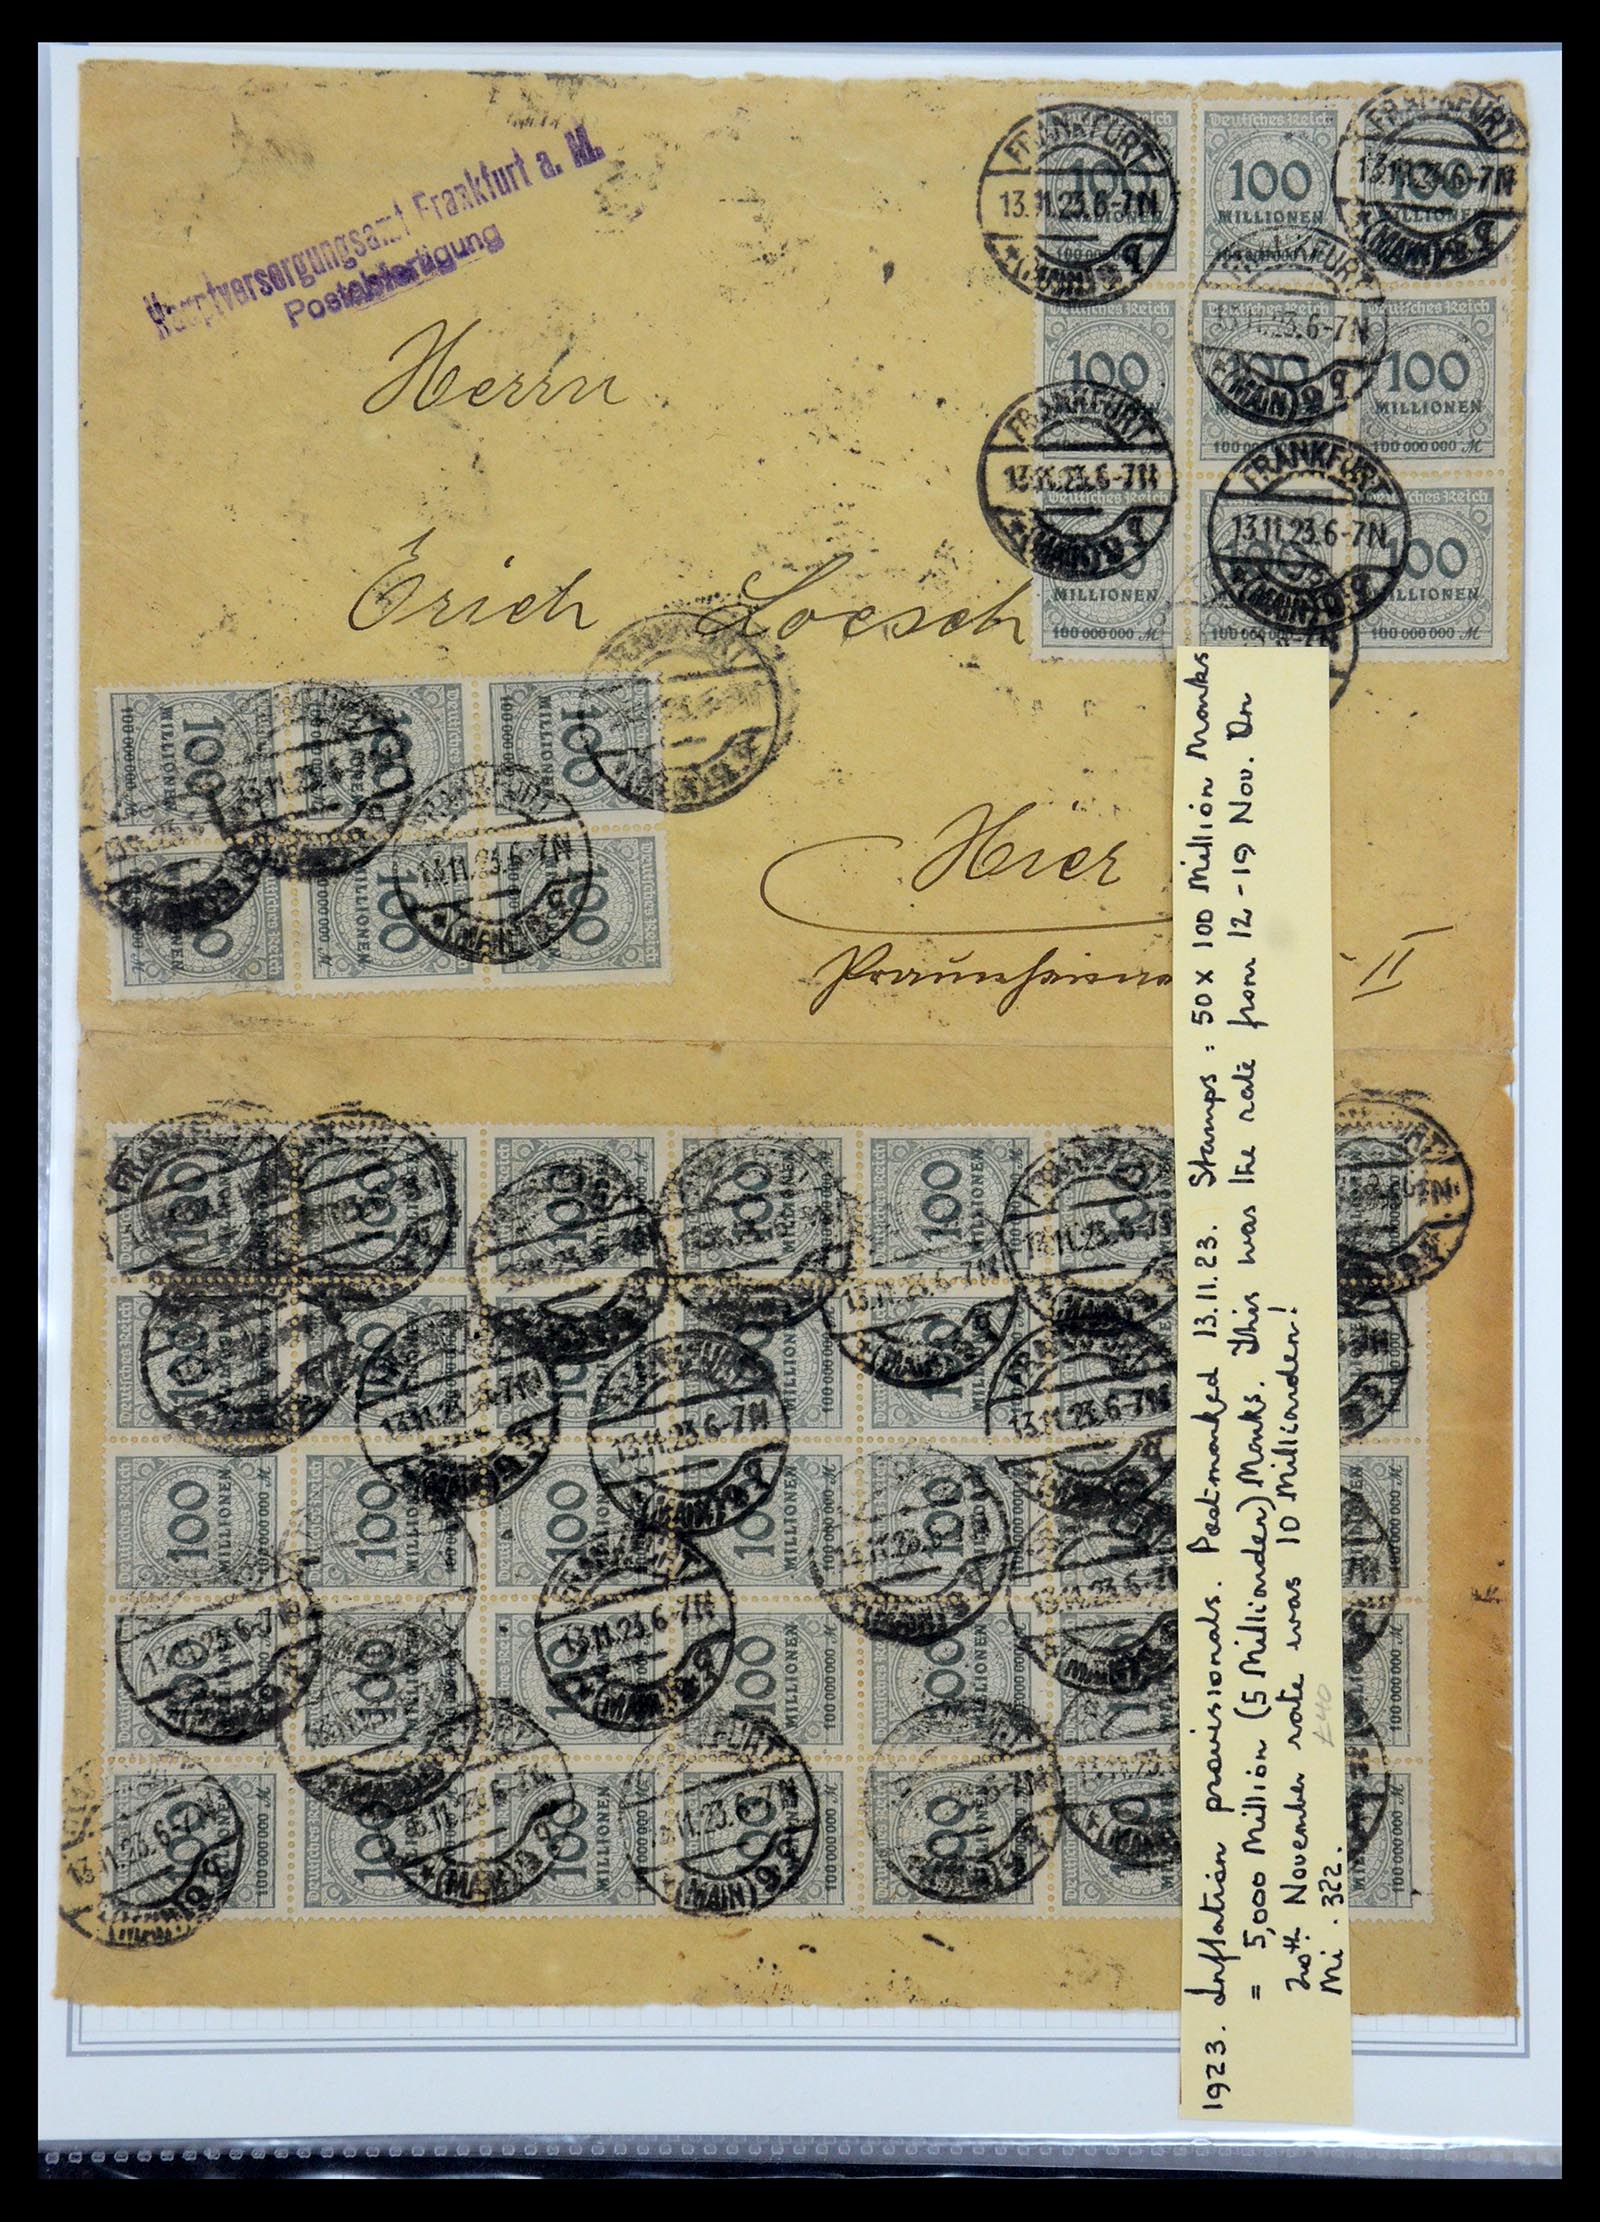 Hauptversorgungsamt Frankfurt a. M.
Postabfertigung
Herrn
Erich Loesch
Hier
II
Deutsches Reich
100
MILLIONEN
100 000 000 M
FRANKFURT
13.11.23.6-7N
*(MAIN) 9 q
1923. Inflation provisionals. Postmarked 13.11.23. Stamps : 50 x 100 Million Marks
= 5,000 Million (5 Milliarden) Marks. This was the rate from 12-19 Nov. On
20th November rate was 10 Milliarden!
Mi. 322.
£40